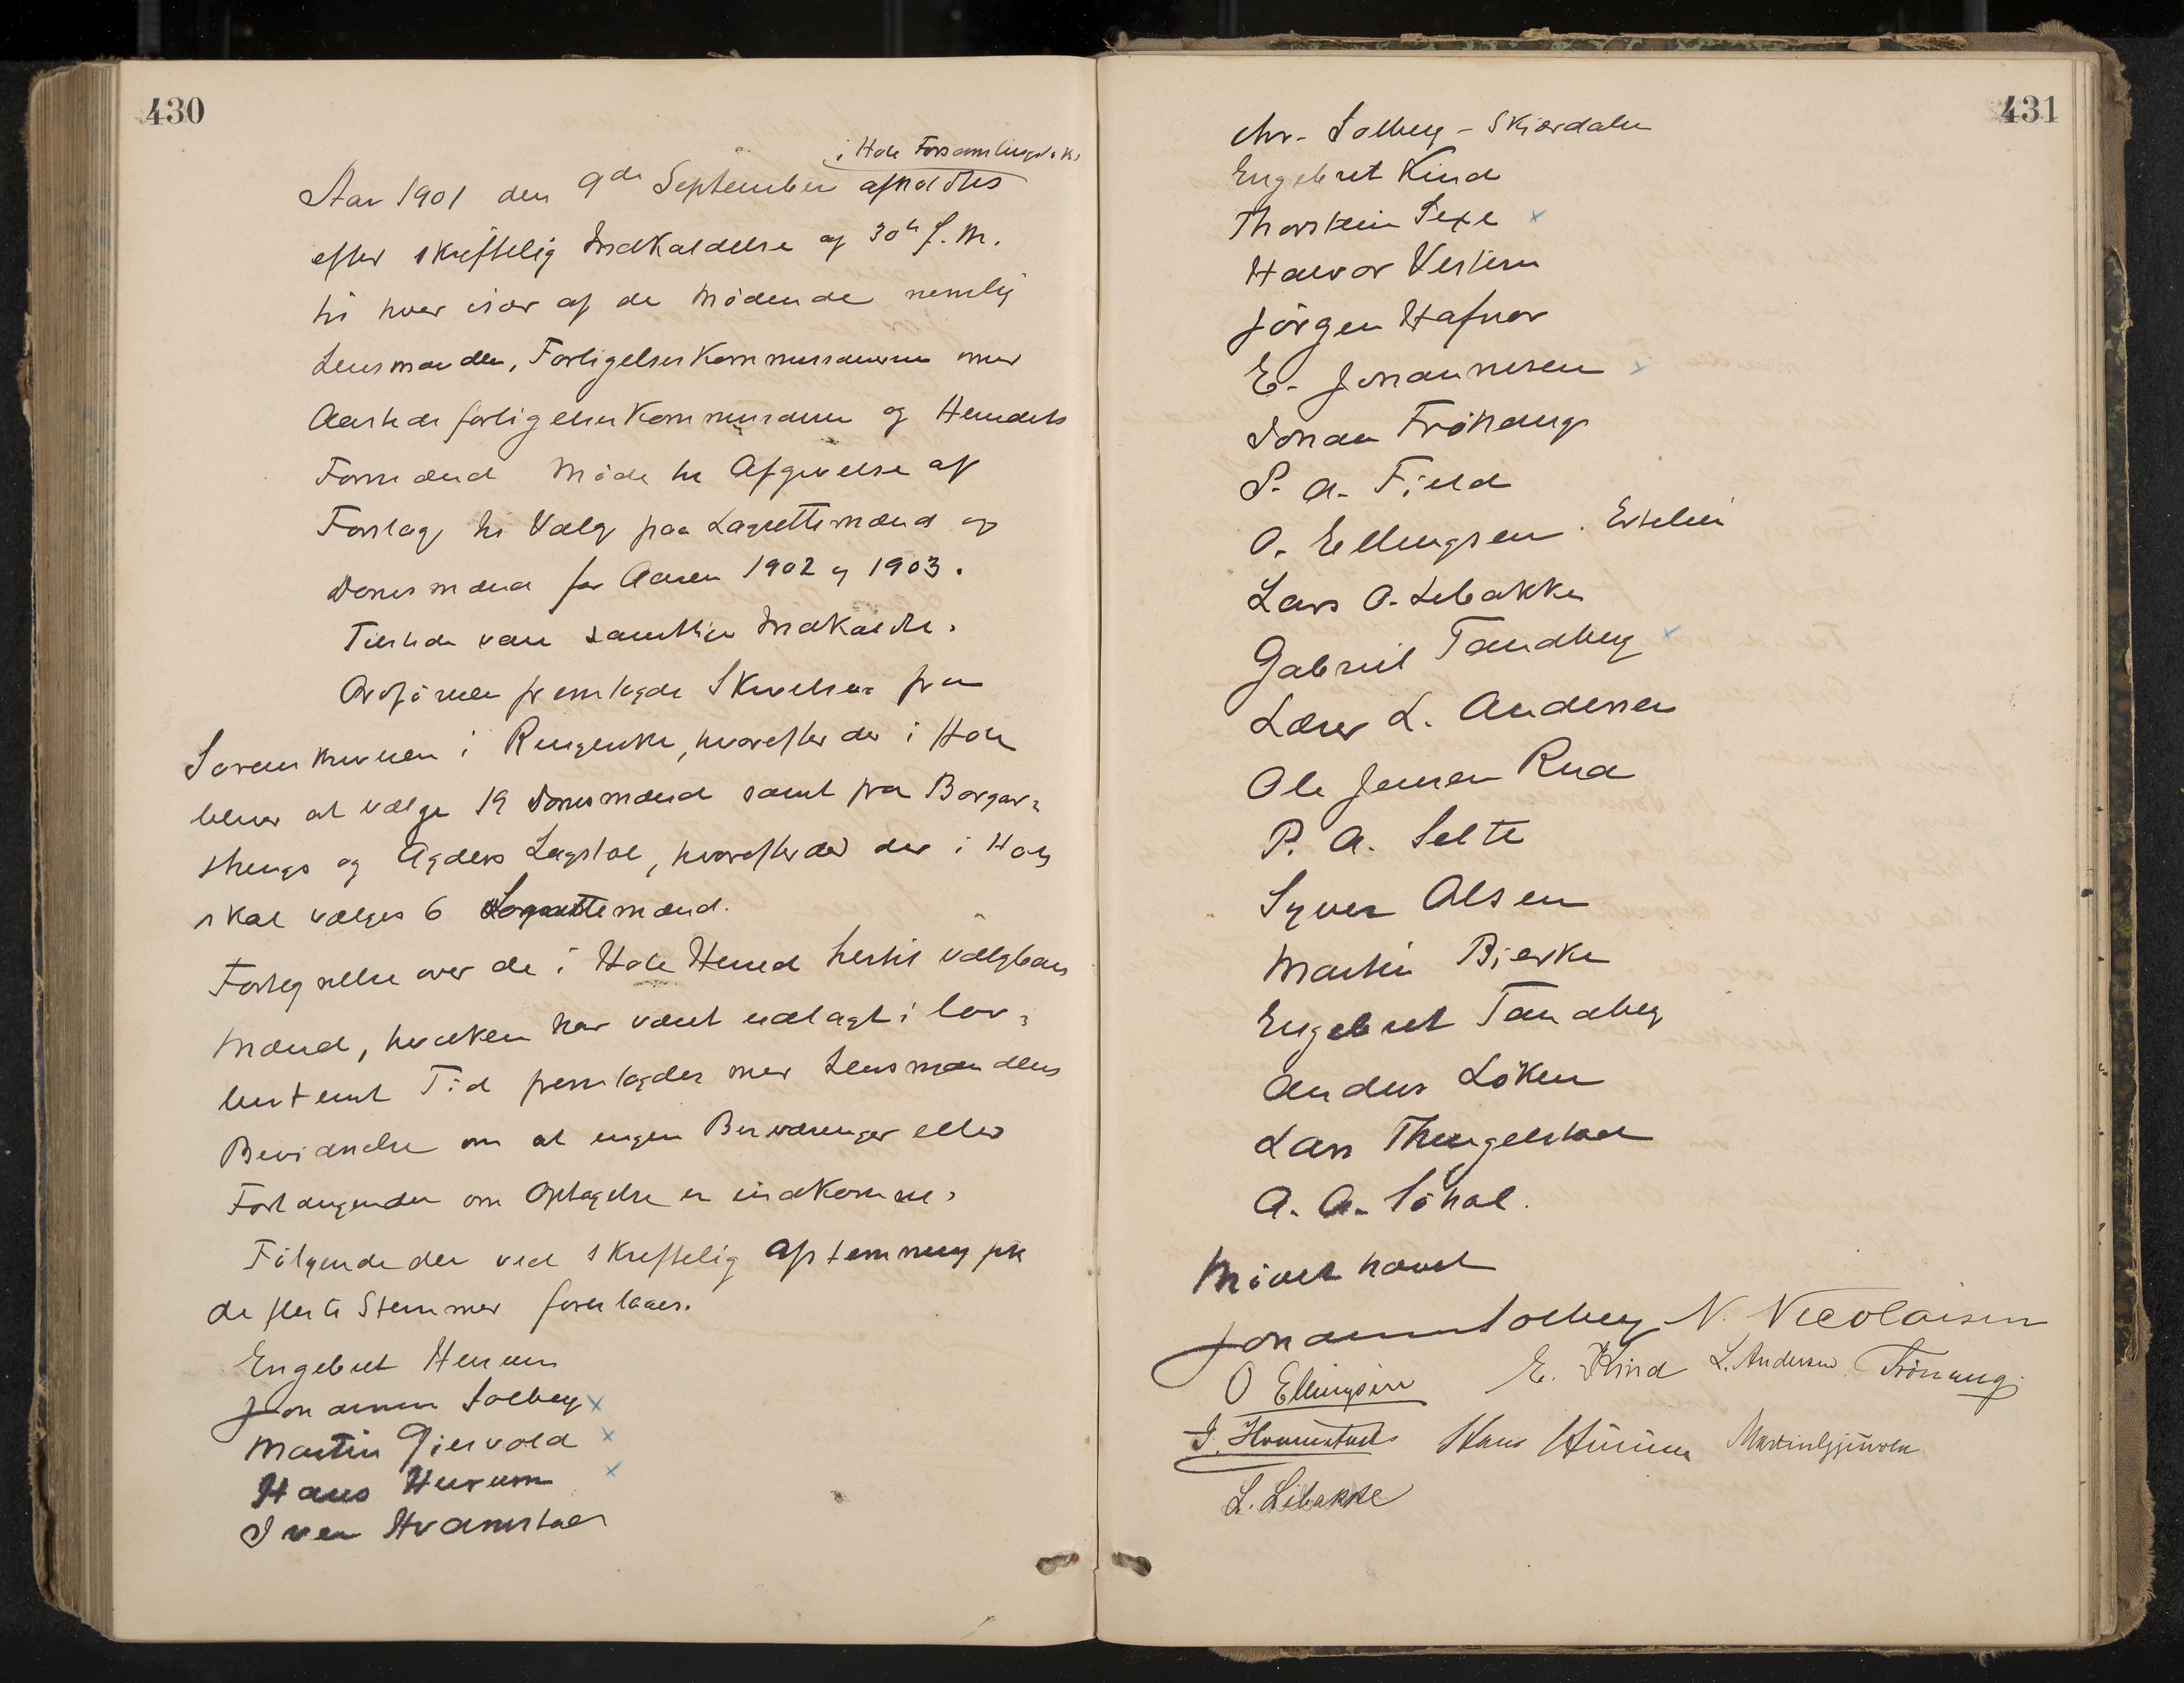 430
i Hole Forsamlingslok.
Aar 1901 den 9de September afholdtes
efter skriftelig Indkaldelse af 30te f. M.
til hver især af de mødende nemlig
Lensmanden, Forligelseskommissærerne
forligelseskommissærer og Herredets
Formænd Møde til Afgivelse af
Forslag til Valg paa Lagrettemænd og
Domsmænd for Aaren 1902 og 1903.
Tilstede vare samtlige Indkaldte.
Ordføreren fremlagde Skrivelser fra
Sorenskriveren i Ringerike, hvorefter der i Hole
bliver at vælge 19 Domsmænd samt fra Borgar-
things og Agders Lagstol, hvorefter der i Hole
skal vælges 6 Lagrettemænd.
Fortegnelse over de i Hole Herred hertil valgbare
Mænd, hvilken har været udlagt i lov-
bestemt Tid fremlagdes med Lensmandens
Bevidnelse om at ingen Besværinger eller
Forlangender om Optagelse er indkomne.
Følgende der ved skriftelig Afstemning fik
de fleste Stemmer foreslaaes.
Engebret Hurum
Johannes Solberg x
Martin Gjesvold x
Hans Hurum x
Iver Hvamstad
431
Chr. Solberg - Skjærdalen
Engebret Kind
Thorstein Sexe x
Halvor Vestern
Jörgen Hafnor
E. Johannesen x
Johan Fröhaug
P. A. Field
O. Ellingsen
Lars O. Libakke
Gabriel Tandberg x
Lærer L. Andersen
Ole Jensen Rud
P. A. Selte
Syver Olsen
Martin Bjerke
Engebret Tandberg
Anders Löken
Lars Thingelstad
A. A. Söhol.
Mödet hævet
Johannes Solberg N. Nicolaisen
O Ellingsen E. Kind L. Andersen Fröhaug.
I. Hvamstad Hans Hurum Martin Gjesvold
L. Libakke